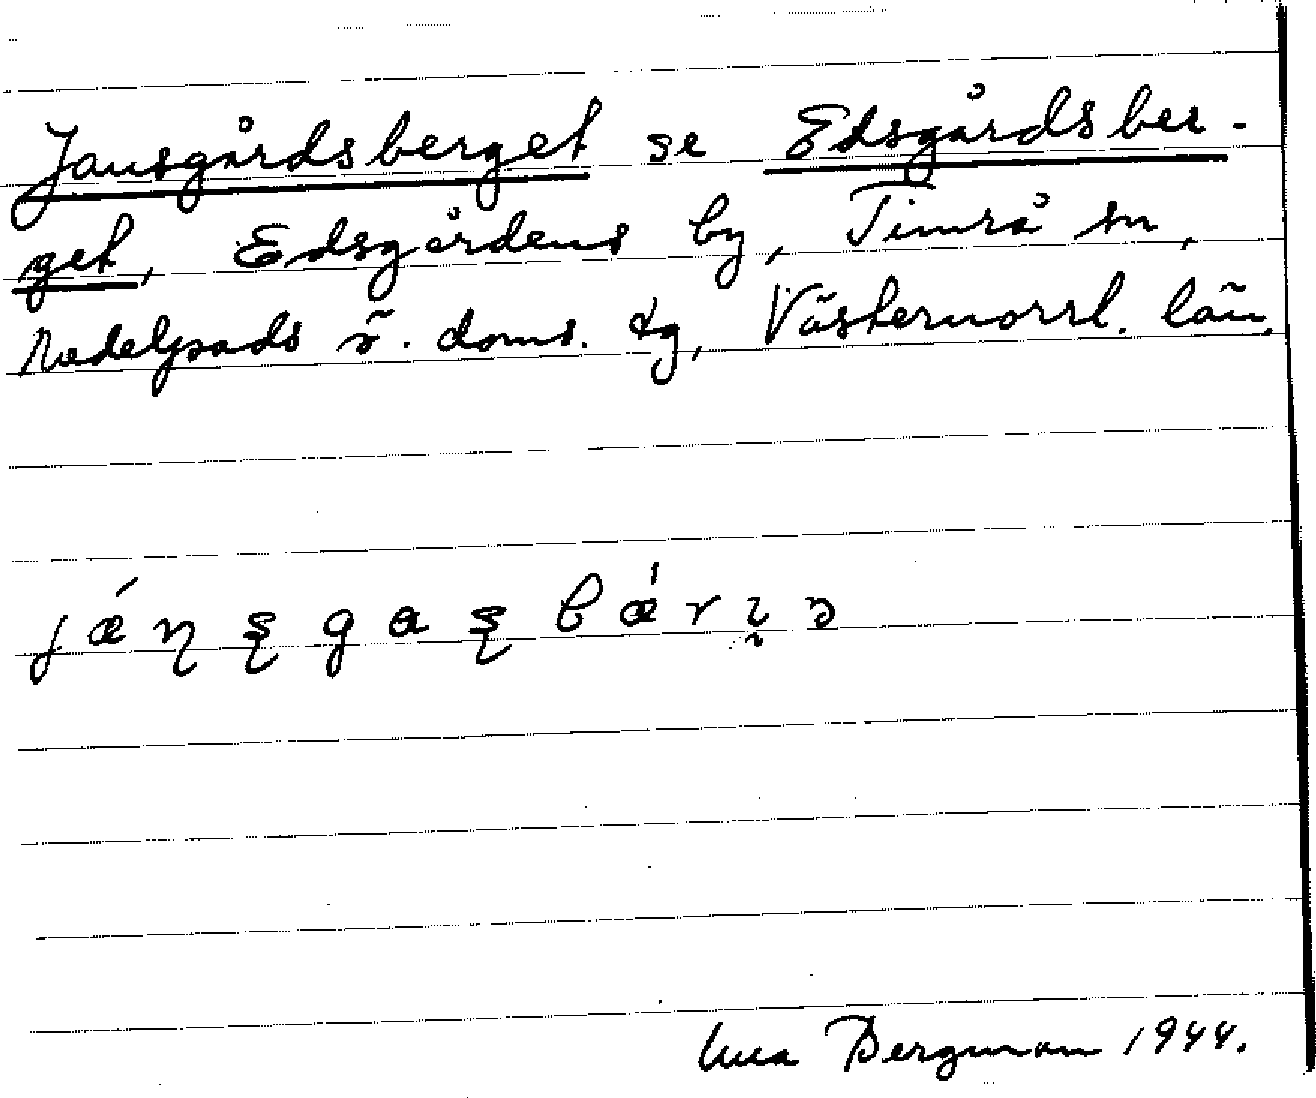 Jansgårdsberget se Edsgårdsber-
get, Edsgårdens by, Timrå sn,
Medelpads ö. doms. tg, Västernorrl. län.
Bergman 1944.